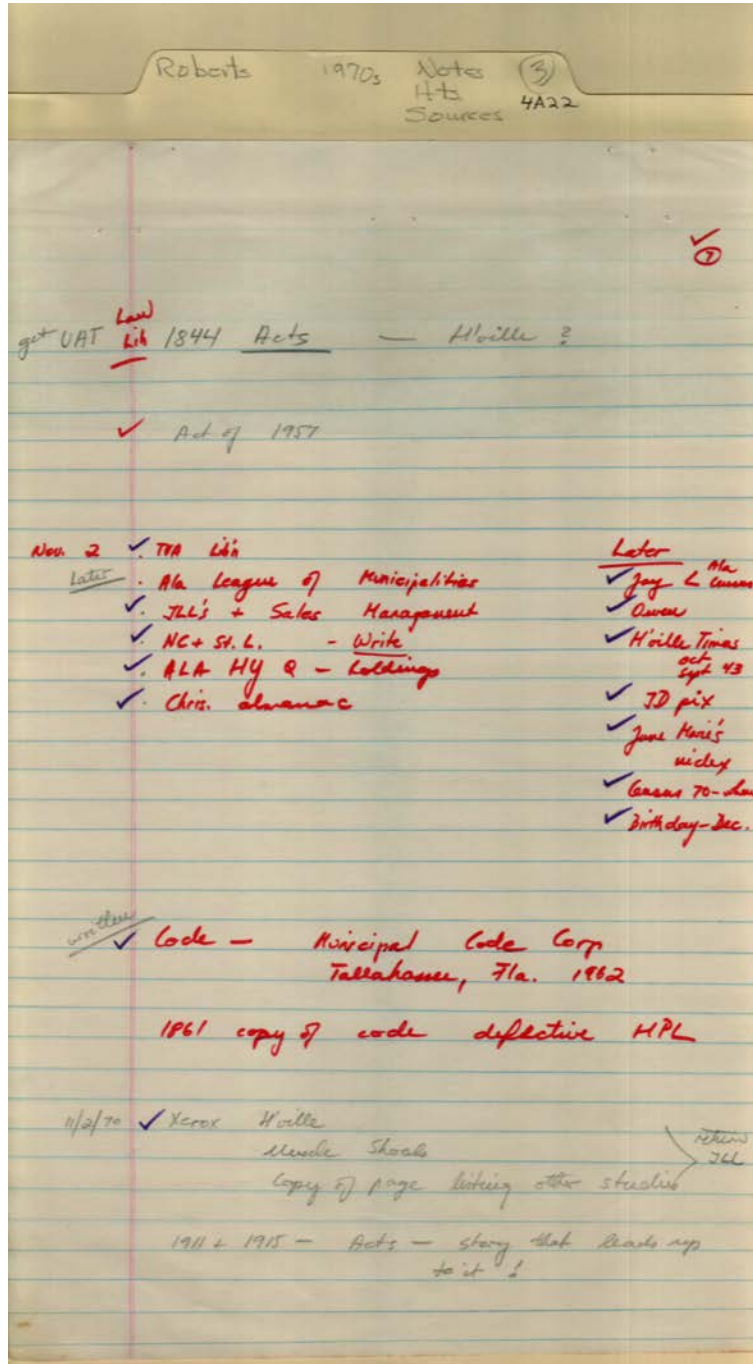 Roberts 1970s Notes ③
Hts 4A22
Sources
✓
⑦
Law
get UAT Lib 1844 Acts — H'ville ?
✓ Act of 1957
Nov. 2 ✓ TVA Lib'n
Later . Ala League of Municipalities
✓ . ILL's + Sales Management
✓ . NC + St. L. - Write
✓ . ALA HY Q - holdings
✓ . Chris. almanac
Later
Ala
✓ Jay L
✓ Owen
✓ H'ville Times
oct
sept 43
✓ JD pix
✓ Jane Marie's
index
✓ Census 70-
✓ Birthday - Dec.
written
✓ Code — Municipal Code Corp
Tallahassee, Fla. 1962
1861 copy of code defective HPL
11/2/70 ✓ Xerox H'ville
Muscle Shoals
Copy of page listing other studies
return
ILL
1911 + 1915 — Acts — story that leads up
to it !